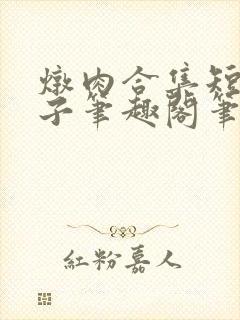 燉肉合集短
子筆趣閣筆
紅粉嘉人